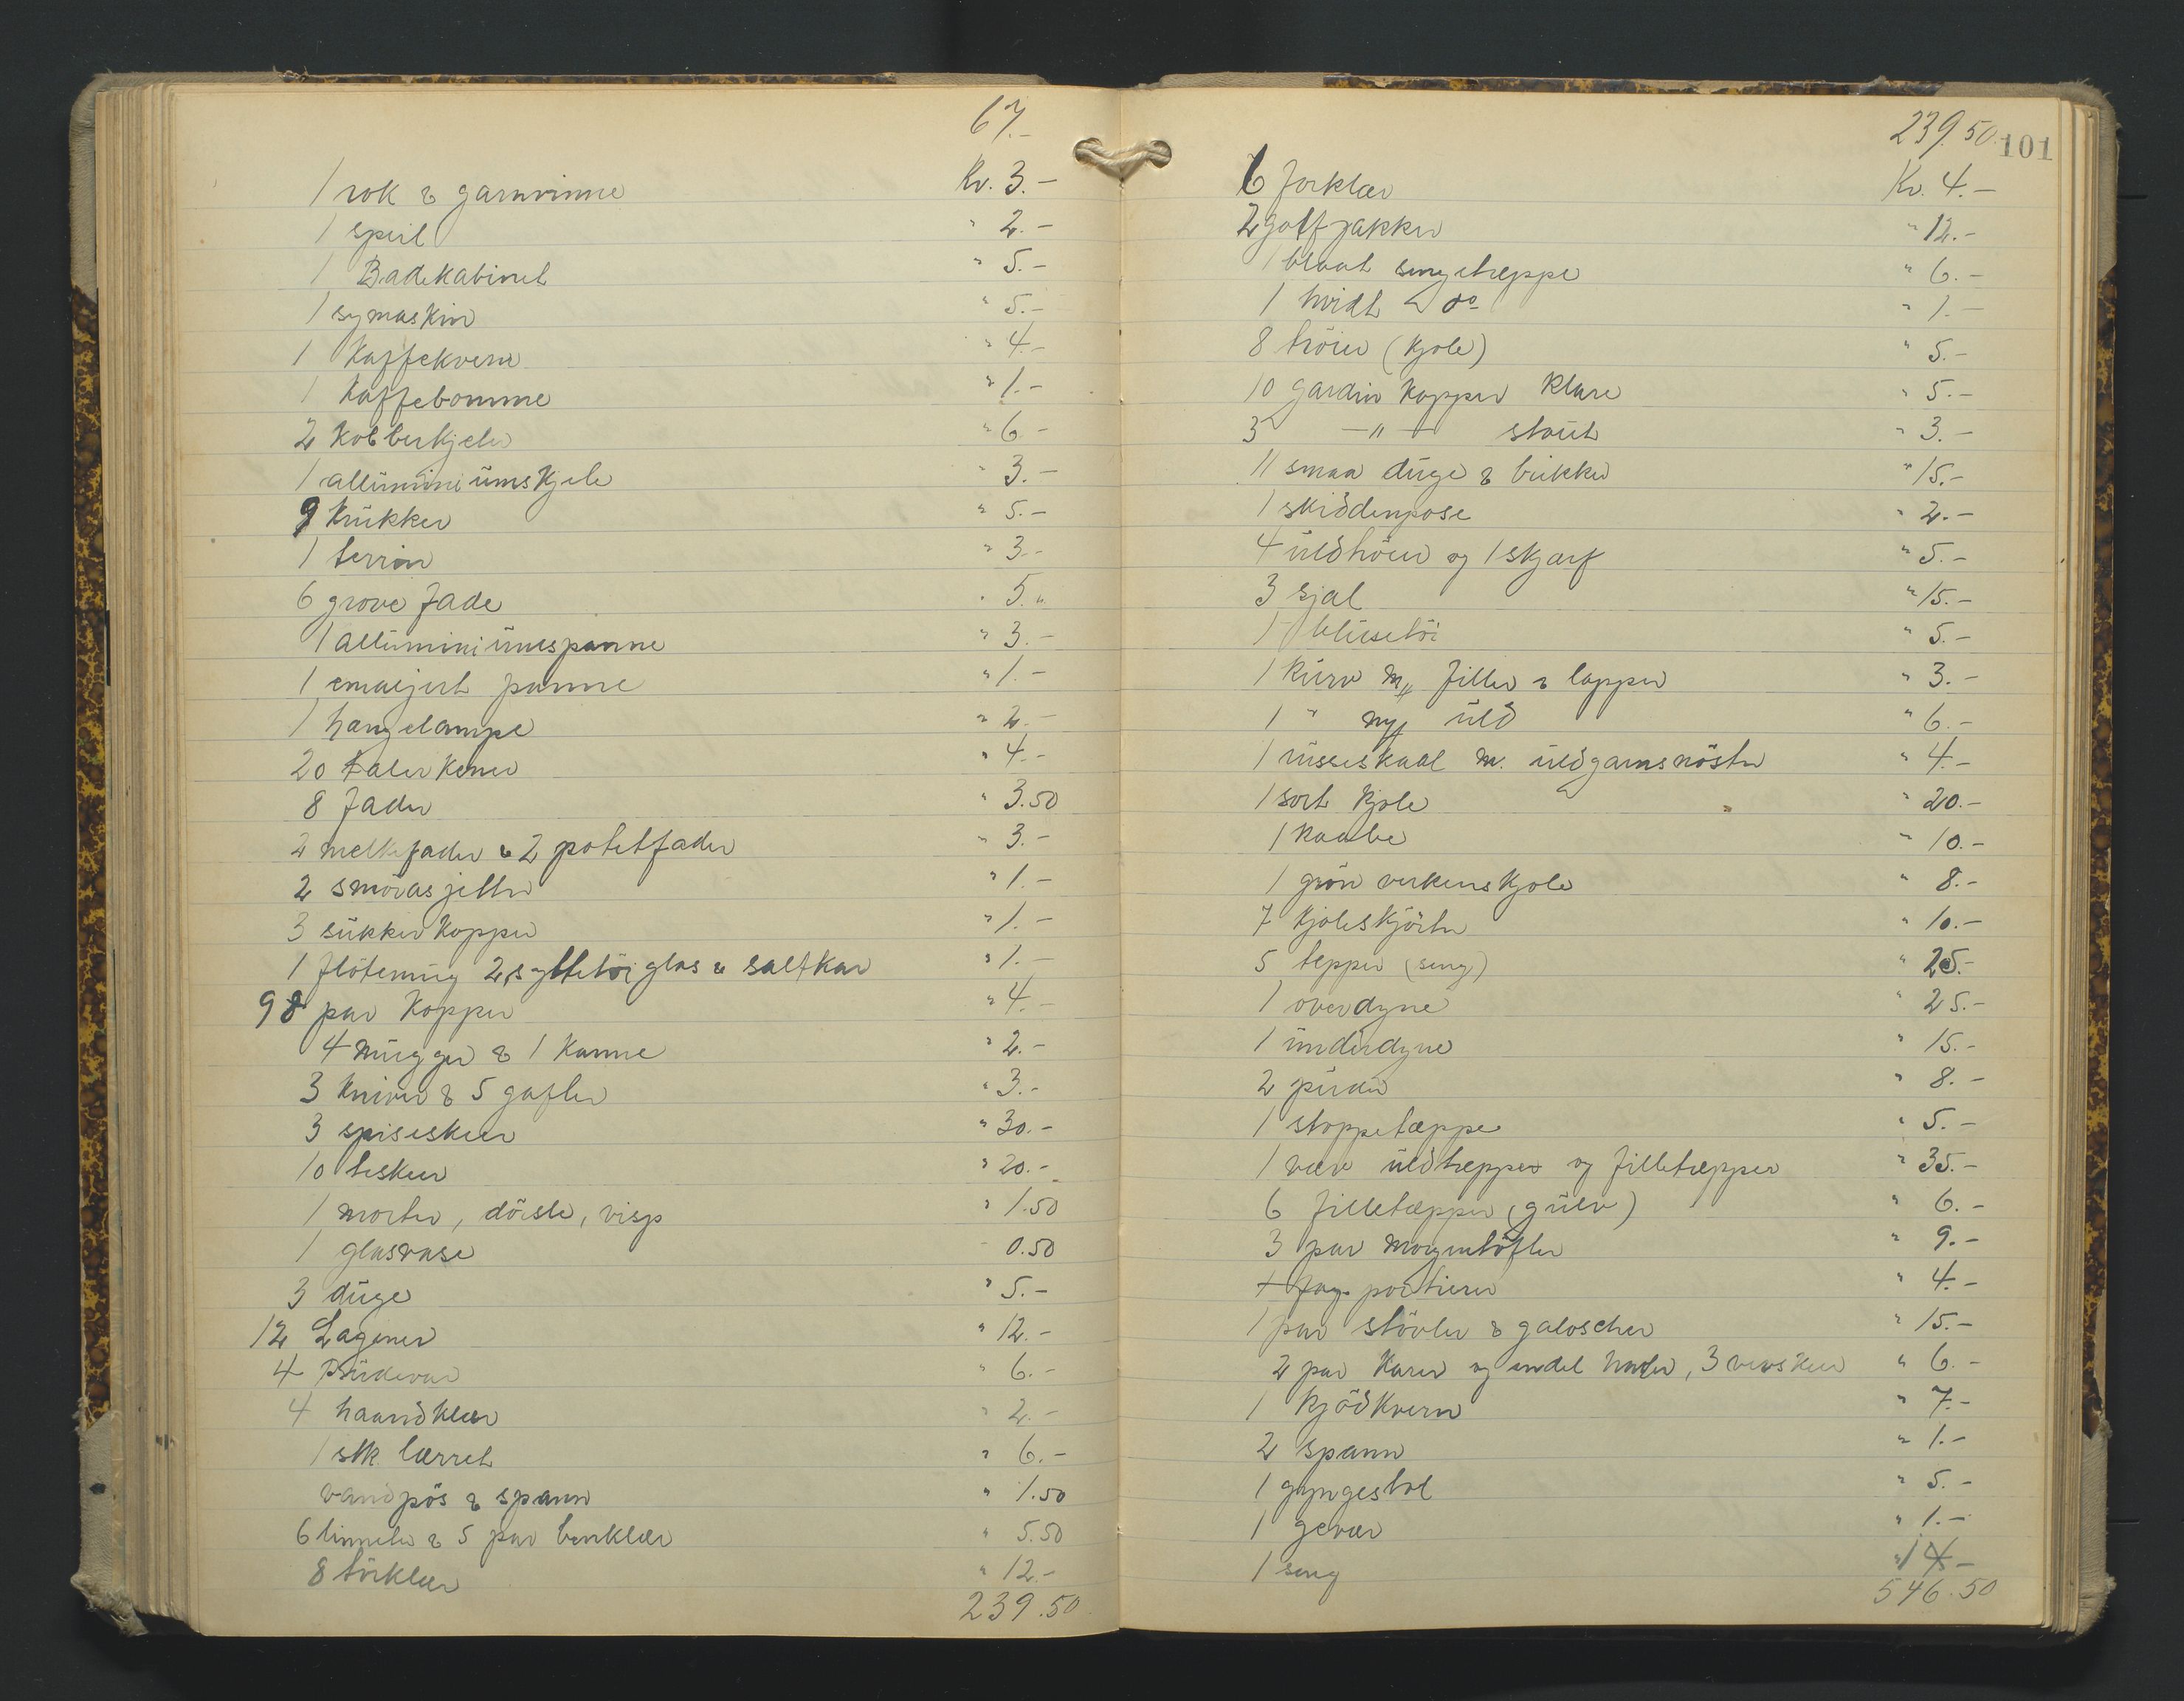 67.-
1 rok & garnvinne Kr. 3.-
1 speil " 2.-
1 Badekabinet " 5.-
1 symaskin " 5.-
1 Kaffekvern " 4.-
1 Kaffebomme " 1.-
2 Kobberkjeler " 6-
1 allüminiümskjele " 3.-
9 Krükker " 5.-
1 terrin " 3.-
6 grove fade " 5."
1 allüminiümspanne " 3.-
1 emaljert panne " 1.-
1 hængelampe " 2.-
20 talerkener " 4.-
8 fader " 3.50
2 melkefader & 2 potetfader " 3.-
2 smörasjetter " 1.-
3 sükkerkopper " 1.-
1 flötemüg 2 syltetöiglas & saltkar " 1.-
98 par Kopper " 4.-
4 mügger & 1 Kanne " 2.-
3 Kniver & 5 gafler " 3.-
3 spiseskeer " 30.-
10 teskeer " 20.-
1 morter, dörsla, visp " 1.50
1 glasvase 0.50
3 düge " 5.-
12 Lagener " 12.-
4 Pütevar " 6.-
4 haandklær " 2.-
1 stk. lærret " 6.-
vandpös & spann " 1.50
6 linneter & 5 par benklær " 5.50
8 törklær " 12.-
239.50
239.50 101
6 forklær Kr. 4.-
2 golfjakker " 12.-
1 blaat sengeteppe " 6.-
1 hvidt do " 1.-
8 tröier (kjole) " 5.-
10 gardin Kapper klare " 5.-
3 -"- stout " 3.-
11 smaa düge & brikker " 15.-
1 skiddenpose " 2.-
4 üldtröier og 1 skjærf " 5.-
3 sjal " 15.-
1 blüsetöi " 5.-
1 Kürv m/ filler & lapper " 3.-
1 " m/ üld " 6.-
1 rüsseskaal m. üldgarnsnöster " 4.-
1 sort kjole " 20.-
1 kaabe " 10.-
1 grön verkenskjole " 8.-
7 kjoleskjörter " 10.-
5 tepper (seng) " 25.-
1 overdyne " 25.-
1 ünderdyne " 15.-
2 püder " 8.-
1 stoppetæppe " 5.-
1 væv üldtæpper og filletæpper " 35.-
6 filletæpper (gülv) " 6.-
3 par morgentöfler " 9.-
1 fag portierer " 4.-
1 par stövler & galoscher " 15.-
2 par Karer og endel 3 " 6.-
1 Kjödkvern " 7.-
2 spann " 1.-
1 gyngestol " 5.-
1 gevær " 1.-
1 seng " 14-
546.50